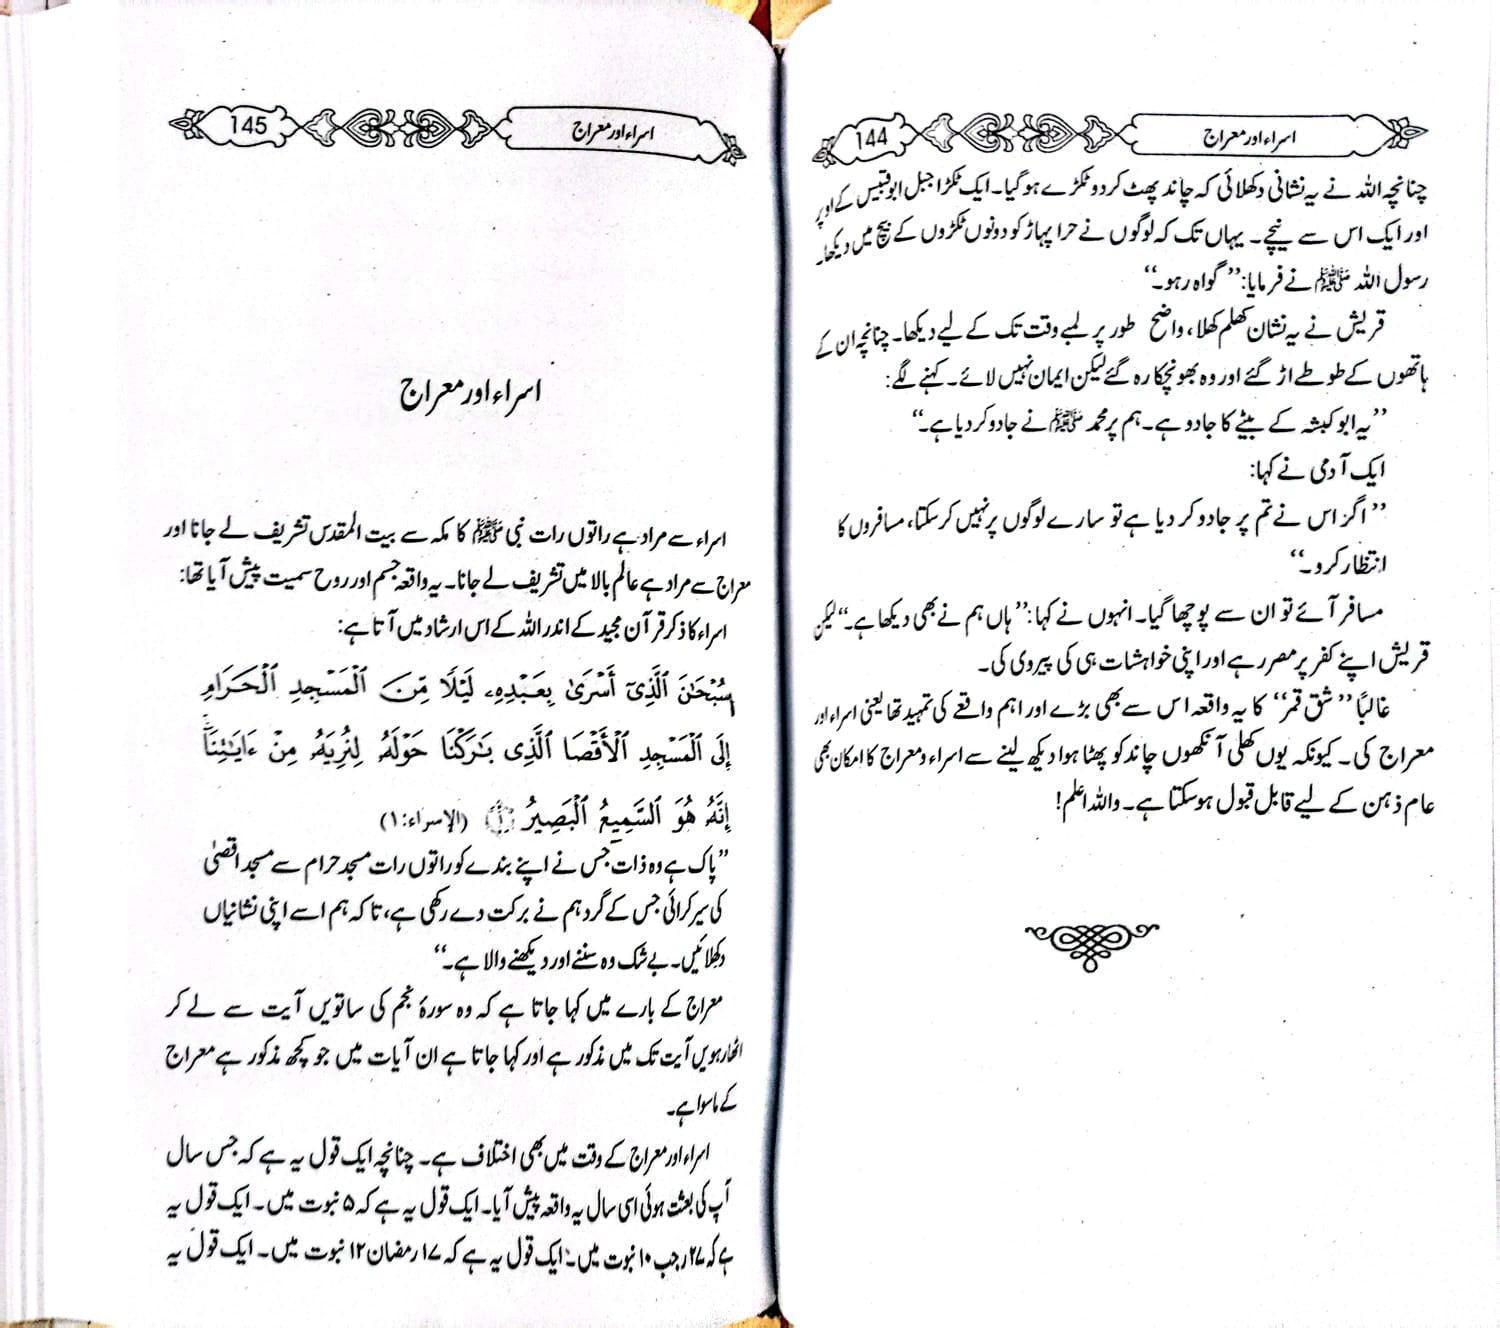 اسراء اور معراج
144
چنانچہ اللہ نے یہ نشانی دکھلائی کہ چاند پھٹ کر دو ٹکڑے ہو گیا۔ ایک ٹکڑا جبل ابوقبیس کے اوپر
اور ایک اس سے نیچے۔ یہاں تک کہ لوگوں نے حرا پہاڑ کو دونوں ٹکڑوں کے بیچ میں دیکھا۔
رسول اللہ ﷺ نے فرمایا: ’’گواہ رہو۔‘‘
قریش نے یہ نشان کھلم کھلا، واضح طور پر لمبے وقت تک کے لیے دیکھا۔ چنانچہ ان کے
ہاتھوں کے طوطے اڑ گئے اور وہ بھونچکا رہ گئے لیکن ایمان نہیں لائے۔ کہنے لگے:
’’یہ ابو کبشہ کے بیٹے کا جادو ہے۔ ہم پر محمد ﷺ نے جادو کر دیا ہے۔‘‘
ایک آدمی نے کہا:
’’اگر اس نے تم پر جادو کر دیا ہے تو سارے لوگوں پر نہیں کر سکتا، مسافروں کا
انتظار کرو۔‘‘
مسافر آئے تو ان سے پوچھا گیا۔ انہوں نے کہا: ’’ہاں ہم نے بھی دیکھا ہے۔‘‘ لیکن
قریش اپنے کفر پر مصر رہے اور اپنی خواہشات ہی کی پیروی کی۔
غالباً ’’شق قمر‘‘ کا یہ واقعہ اس سے بھی بڑے اور اہم واقعے کی تمہید تھا یعنی اسراء اور
معراج کی۔ کیونکہ یوں کھلی آنکھوں چاند کو پھٹا ہوا دیکھ لینے سے اسراء و معراج کا امکان بھی
عام ذہن کے لیے قابل قبول ہو سکتا ہے۔ واللہ اعلم!
اسراء اور معراج
145
اسراء اور معراج
اسراء سے مراد ہے راتوں رات نبی ﷺ کا مکہ سے بیت المقدس تشریف لے جانا اور
معراج سے مراد ہے عالم بالا میں تشریف لے جانا۔ یہ واقعہ جسم اور روح سمیت پیش آیا تھا:
اسراء کا ذکر قرآن مجید کے اندر اللہ کے اس ارشاد میں آتا ہے:
سُبْحَٰنَ ٱلَّذِىٓ أَسْرَىٰ بِعَبْدِهِۦ لَيْلًا مِّنَ ٱلْمَسْجِدِ ٱلْحَرَامِ
إِلَى ٱلْمَسْجِدِ ٱلْأَقْصَا ٱلَّذِى بَٰرَكْنَا حَوْلَهُۥ لِنُرِيَهُۥ مِنْ ءَايَٰتِنَآ ۚ
إِنَّهُۥ هُوَ ٱلسَّمِيعُ ٱلْبَصِيرُ ﴿١﴾ (الإسراء: ١)
’’پاک ہے وہ ذات جس نے اپنے بندے کو راتوں رات مسجد حرام سے مسجد اقصیٰ
کی سیر کرائی جس کے گرد ہم نے برکت دے رکھی ہے، تاکہ ہم اسے اپنی نشانیاں
دکھلائیں۔ بے شک وہ سننے اور دیکھنے والا ہے۔‘‘
معراج کے بارے میں کہا جاتا ہے کہ وہ سورۂ نجم کی ساتویں آیت سے لے کر
اٹھارہویں آیت تک میں مذکور ہے اور کہا جاتا ہے ان آیات میں جو کچھ مذکور ہے معراج
کے ماسوا ہے۔
اسراء اور معراج کے وقت میں بھی اختلاف ہے۔ چنانچہ ایک قول یہ ہے کہ جس سال
آپ کی بعثت ہوئی اسی سال یہ واقعہ پیش آیا۔ ایک قول یہ ہے کہ ۵ نبوت میں۔ ایک قول یہ
ہے کہ ۲۷ رجب ۱۰ نبوت میں۔ ایک قول یہ ہے کہ ۱۷ رمضان ۱۲ نبوت میں۔ ایک قول یہ